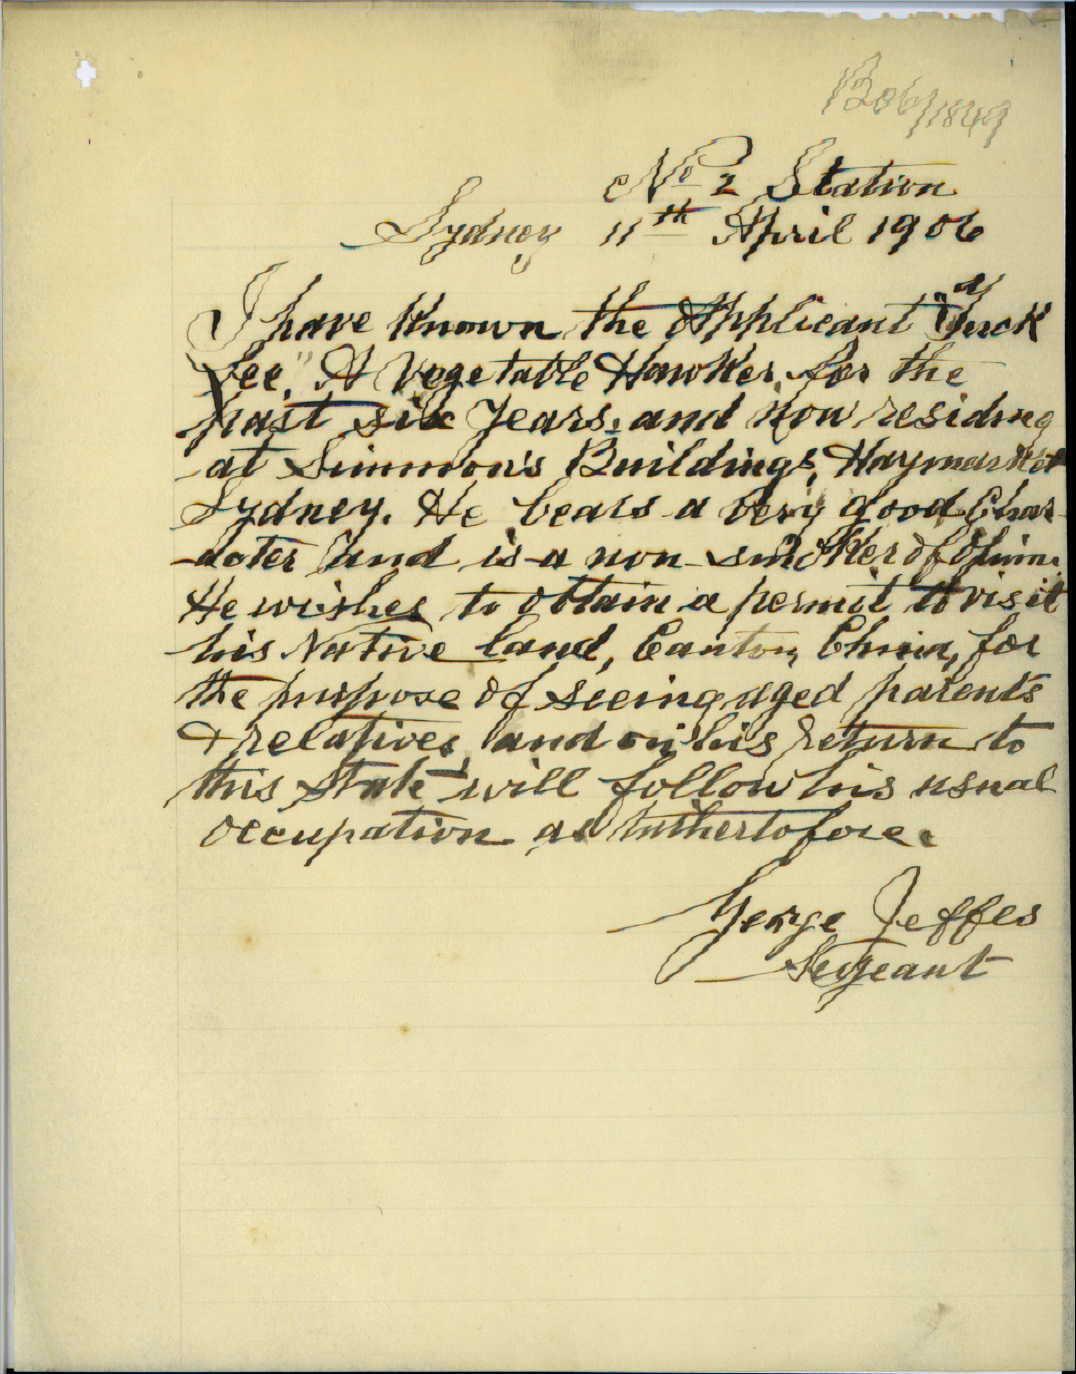 B06/1849
No 2 Station
Sydney 11th April 1906
I have known the Applicant
Lee," A Vegetable Hawker, for the
past six years, and now residing
at Simmon's Buildings, Haymarket
Sydney. He bears a very good Char-
-acter and is a non-smoker of Opium.
He wishes to obtain a permit to visit
his Native land, Canton, China, for
the purpose of seeing aged parents
& relatives and on his return to
this State will follow his usual
occupation as hithertofore.
George Jeffes
Sergeant